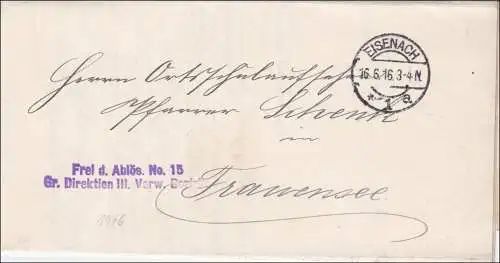 EISENACH
16.6.16.3-4N.
* 1 a
Herrn Ortsschulaufseher
Pfarrer Schenk
in
Frei d. Ablös. No. 15
Gr. Direktion III. Verw. Bezirks
Frauensee
1916